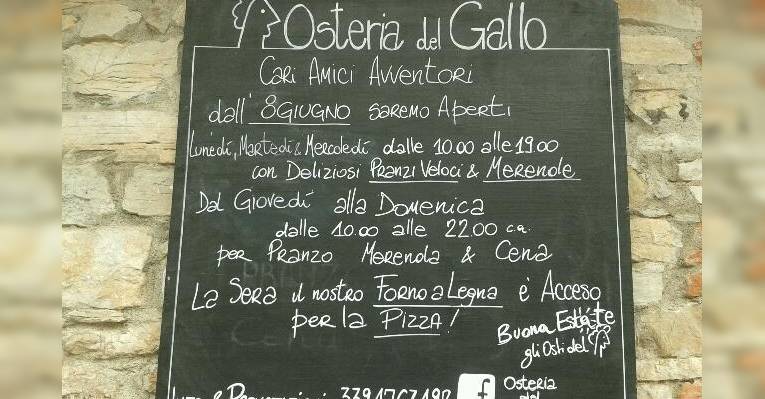 Osteria del Gallo
Cari Amici Avventori
dall' 8 GIUGNO saremo Aperti
Lunedí, Martedí & Mercoledí dalle 10.00 alle 19.00
con Deliziosi Pranzi Veloci & Merende
Dal Giovedí alla Domenica
dalle 10.00 alle 22.00 ca.
per Pranzo Merenda & Cena
La Sera il nostro Forno a Legna é Acceso
per la Pizza!
Buona Estate
gli Osti del
f Osteria